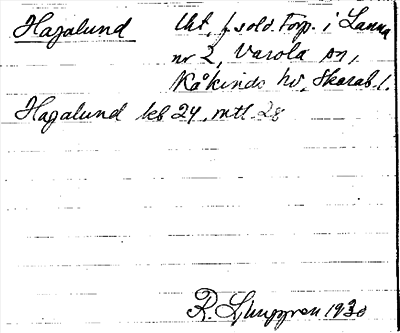 Hagalund Uht, f. sold. torp. i Lanna
nr 2, Varola sn,
Kåkinds hd, Skarab. l.
Hagalund kb 24. mtl. 28
R. Ljunggren 1930